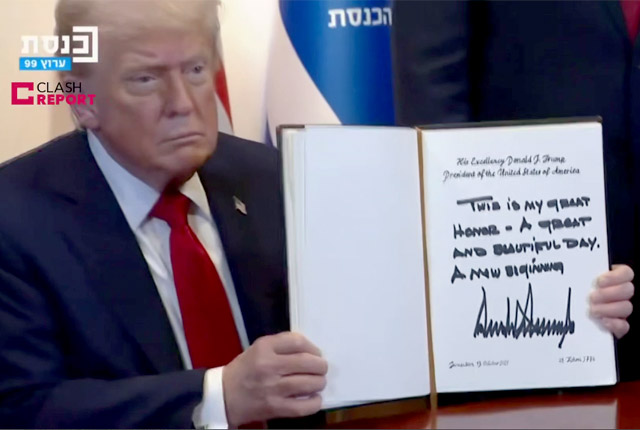 כנסת
ערוץ 99
CLASH
REPORT
הכנסת
His Excellency Donald J. Trump
President of the United States of America
THIS IS MY GREAT
HONOR - A GREAT
AND BEAUTIFUL DAY.
A NEW BEGINNING
Jerusalem, 13 October 2025